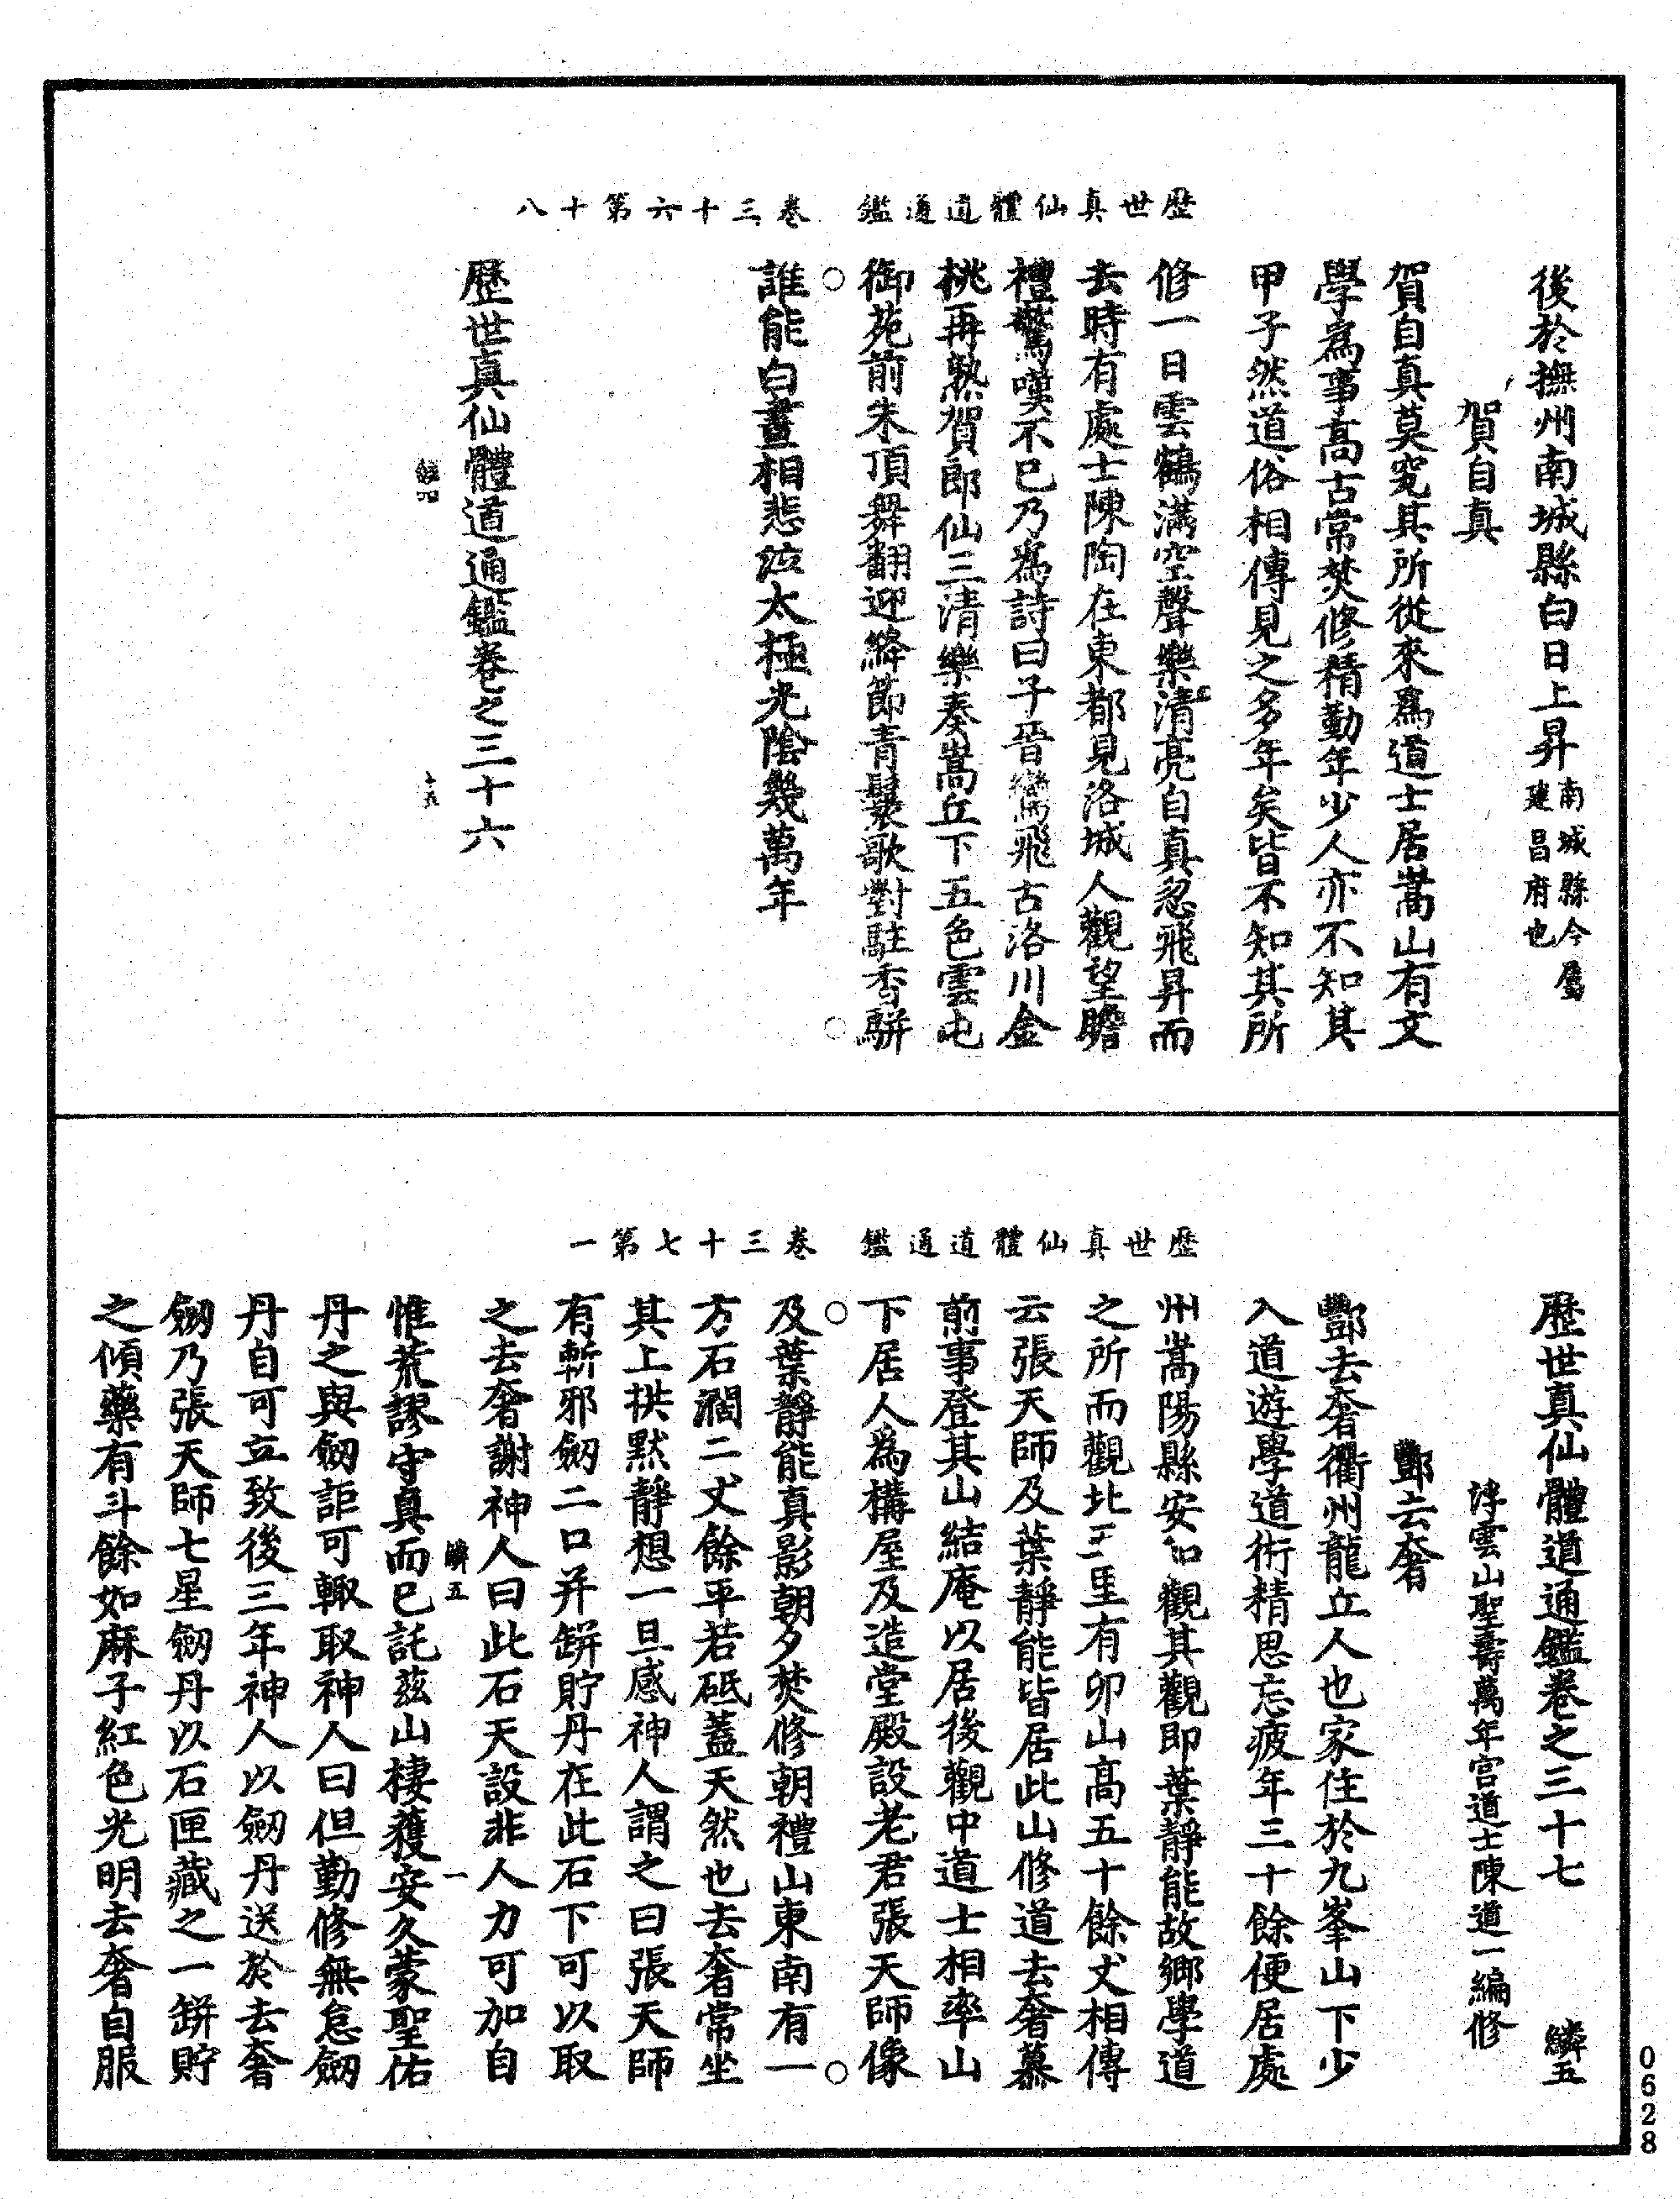 歷世真仙體道通鑑　卷三十六第十八
後於撫州南城縣白日上昇南城縣今屬建昌府也
賀自真
賀自真莫究其所從來爲道士居嵩山有文
學爲事高古常焚修精勤年少人亦不知其
甲子然道俗相傳見之多年矣皆不知其所
修一日雲鶴滿空聲樂清亮自真忽飛昇而
去時有處士陳陶在東都見洛城人觀望瞻
禮驚嘆不已乃爲詩曰子晉鸞飛古洛川金
桃再熟賀郎仙三清樂奏嵩丘下五色雲屯
御苑前朱頂舞翻迎絳節青鬟歌對駐香駢
誰能白晝相悲泣太極光陰幾萬年
歷世真仙體道通鑑卷之三十六
十五
歷世真仙體道通鑑　卷三十七第一
歷世真仙體道通鑑卷之三十七　鱗五
浮雲山聖壽萬年宮道士陳道一編修
酆去奢
酆去奢衢州龍丘人也家住於九峯山下少
入道遊學道術精思忘疲年三十餘便居處
州嵩陽縣安和觀其觀即葉靜能故鄉學道
之所而觀北三里有卯山高五十餘丈相傳
云張天師及葉靜能皆居此山修道去奢慕
前事登其山結庵以居後觀中道士相率山
下居人爲構屋及造堂殿設老君張天師像
及葉靜能真影朝夕焚修朝禮山東南有一
方石濶二丈餘平若砥蓋天然也去奢常坐
其上拱默靜想一旦感神人謂之曰張天師
有斬邪劒二口并缾貯丹在此石下可以取
之去奢謝神人曰此石天設非人力可加自
鱗五　一
惟荒謬守真而已託茲山棲獲安久蒙聖佑
丹之與劒詎可輙取神人曰但勤修無怠劒
丹自可立致後三年神人以劒丹送於去奢
劒乃張天師七星劒丹以石匣藏之一缾貯
之傾藥有斗餘如麻子紅色光明去奢自服
0628